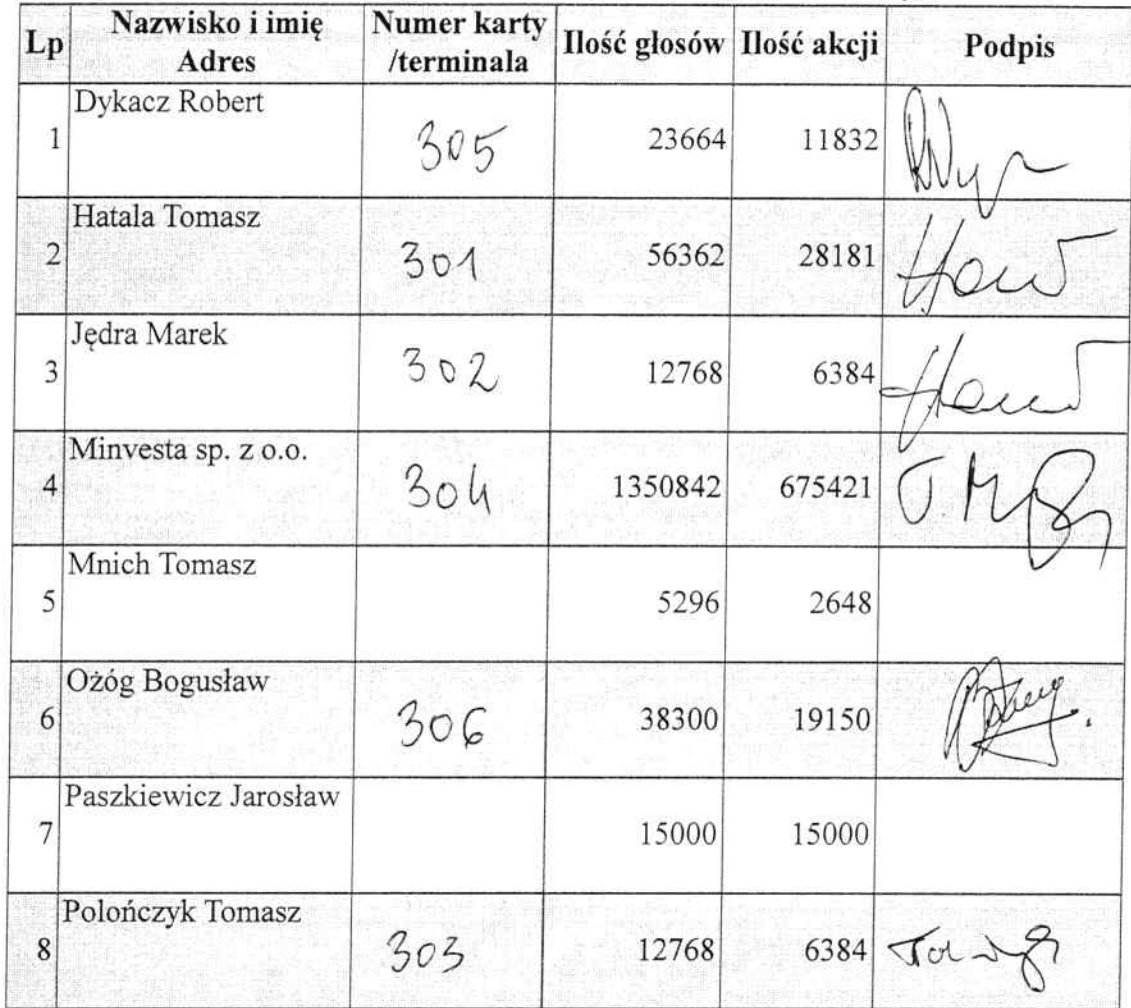 Lp Nazwisko i imię Adres Numer karty /terminala Ilość głosów Ilość akcji Podpis
1 Dykacz Robert 305 23664 11832
2 Hatala Tomasz 301 56362 28181
3 Jędra Marek 302 12768 6384
4 Minvesta sp. z o.o. 304 1350842 675421
5 Mnich Tomasz 5296 2648
6 Ożóg Bogusław 306 38300 19150
7 Paszkiewicz Jarosław 15000 15000
8 Polończyk Tomasz 303 12768 6384